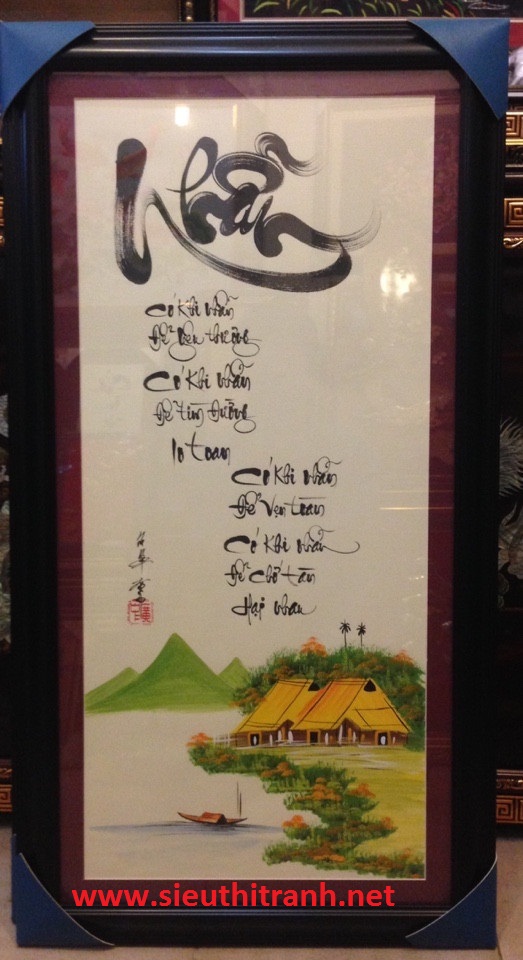 Nhẫn
Có Khi nhẫn
Để yêu thương
Có Khi nhẫn
Để tìm Đường
lo toan
Có Khi nhẫn
Để vẹn toàn
Có Khi nhẫn
Để chớ tàn
Hại nhau
www.sieuthitranh.net